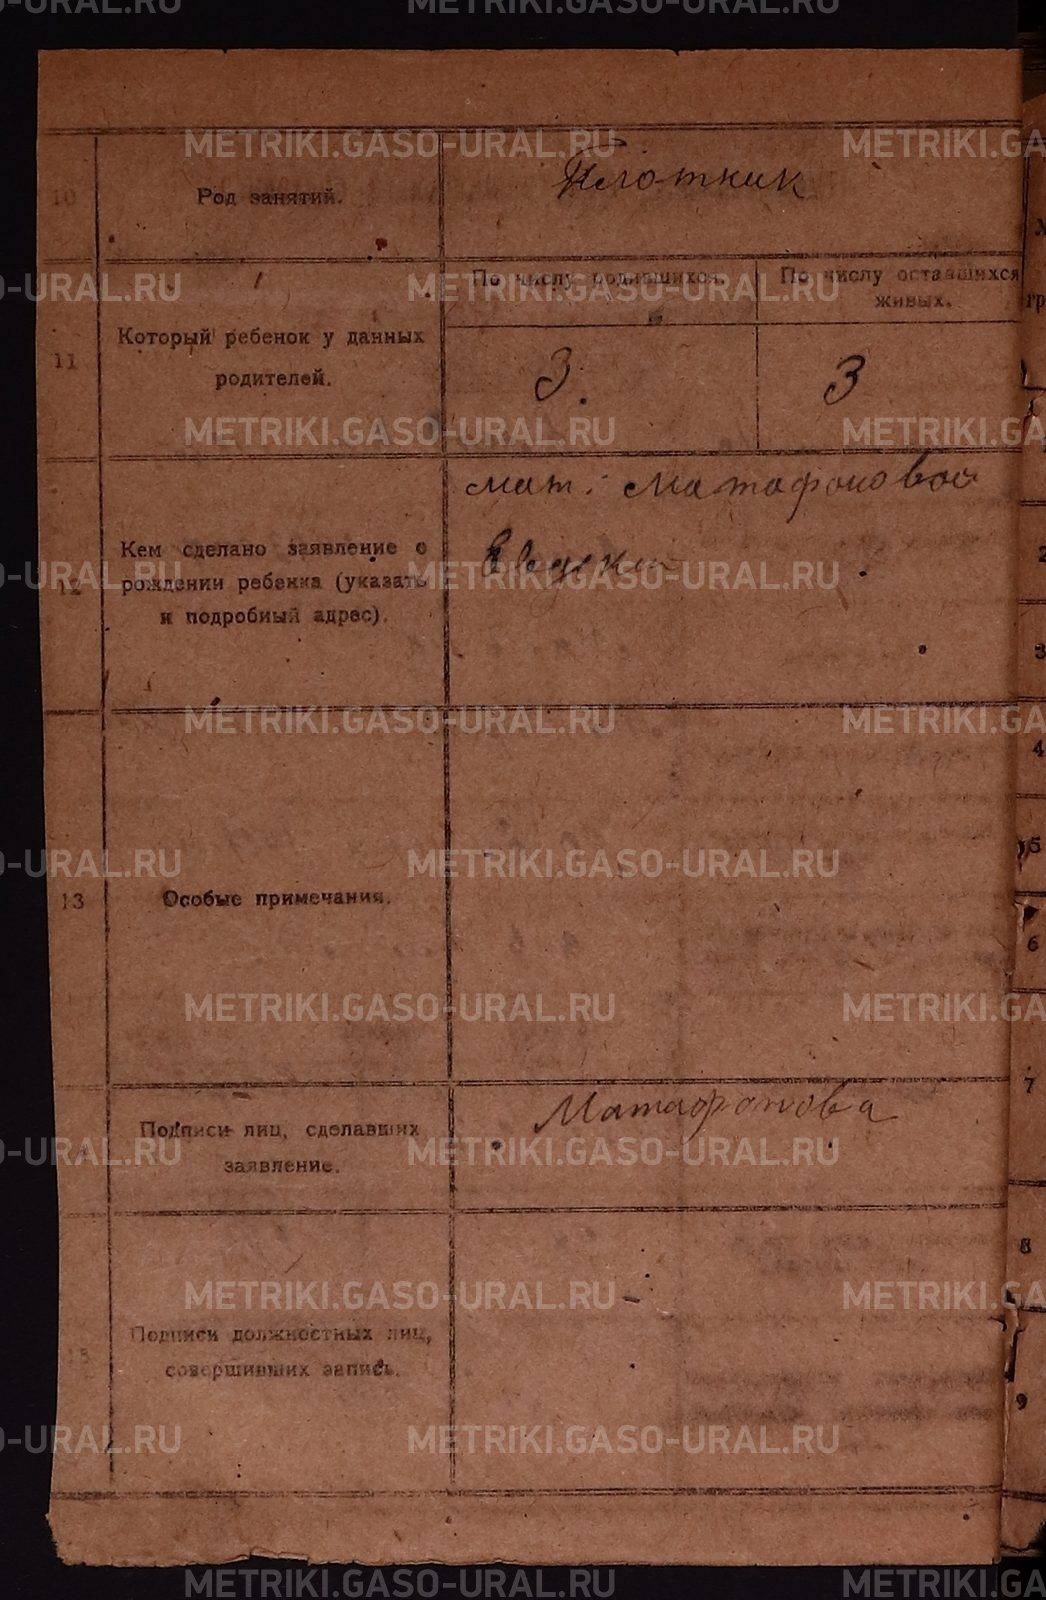 METRIKI.GASO-URAL.RU
10
Род занятий.
Плотник
11
Который ребенок у данных
родителей.
По числу родившихся.
По числу оставшихся
живых.
3.
3
12
Кем сделано заявление о
рождении ребенка (указать
и подробный адрес).
мат. Матафоновой
13
Особые примечания.
Подписи лиц, сделавших
заявление.
Матафонова
15
Подписи должностных лиц,
совершивших запись.
2
3
4
5
6
7
8
9